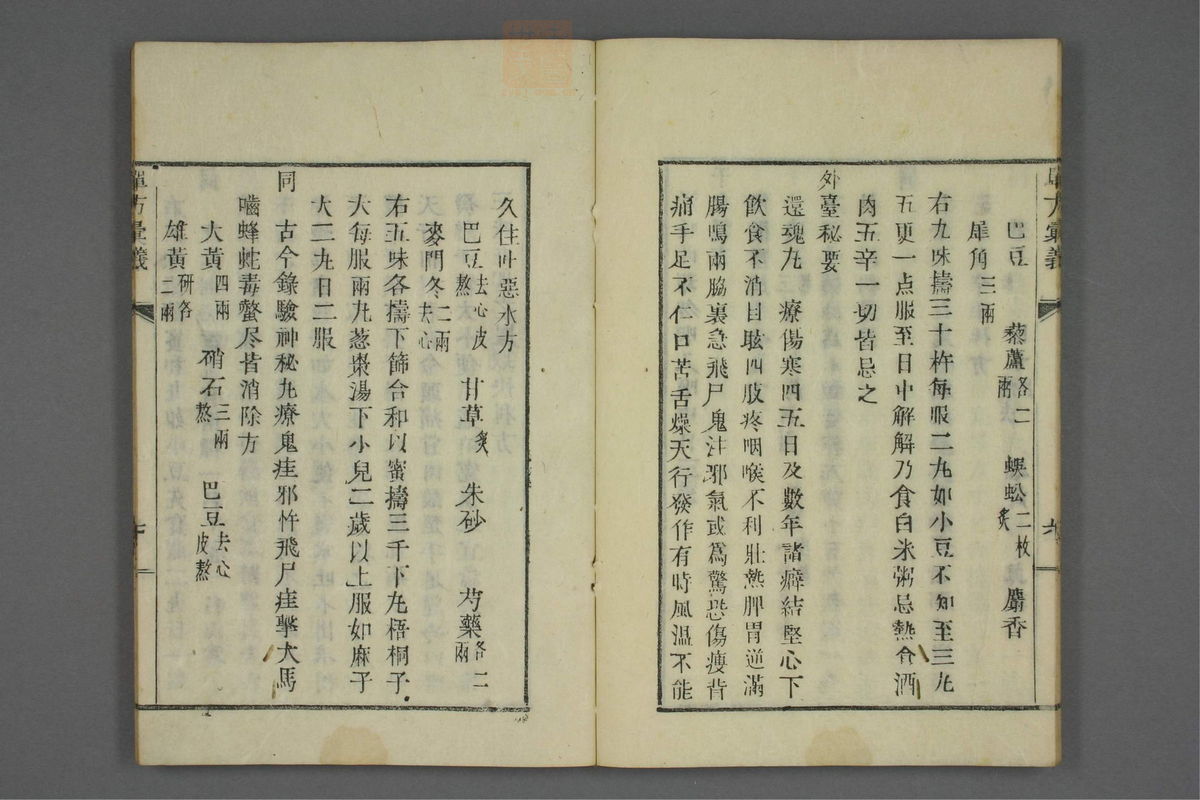 巴豆 藜蘆各二兩 蜈蚣二枚炙 麝香
犀角三兩
右九味擣三十杵每服二丸如小豆不知至三丸
五更一点服至日中解解乃食白米粥忌熱食酒
肉五辛一切皆忌之
外臺秘要
還魂丸 療傷寒四五日及數年諸癖結堅心下
飲食不消目眩四肢疼咽喉不利壯熱脾胃逆滿
腸鳴兩脇裏急飛尸鬼注邪氣或爲驚恐傷瘦背
痛手足不仁口苦舌燥天行發作有時風溫不能
久住吐惡水方
巴豆去心皮熬 甘草炙 朱砂 芍藥各二兩
麥門冬二兩去心
右五味各擣下篩合和以蜜擣三千下丸梧桐子
大每服兩丸葱棗湯下小兒二歲以上服如麻子
大二丸日二服
同 古今錄驗神秘丸療鬼疰邪忤飛尸疰擊犬馬
嚙蜂蛇毒螫尽皆消除方
大黃四兩 硝石三兩熬 巴豆去心皮熬
雄黃研各二兩
單方彙義